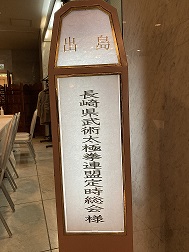 出島
長崎県武術太極拳連盟定時総会様